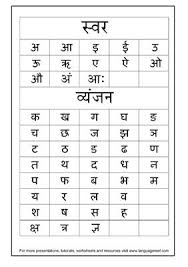 स्वर
अ आ इ ई उ
ऊ ऋ ए ऐ ओ
औ अं अः
व्यंजन
क ख ग घ ङ
च छ ज झ ञ
ट ठ ड ढ ण
त थ द ध न
प फ ब भ म
य र ल व
श ष स ह
क्ष त्र ज्ञ
For more presentations, tutorials, worksheets and resources visit www.languagereef.com